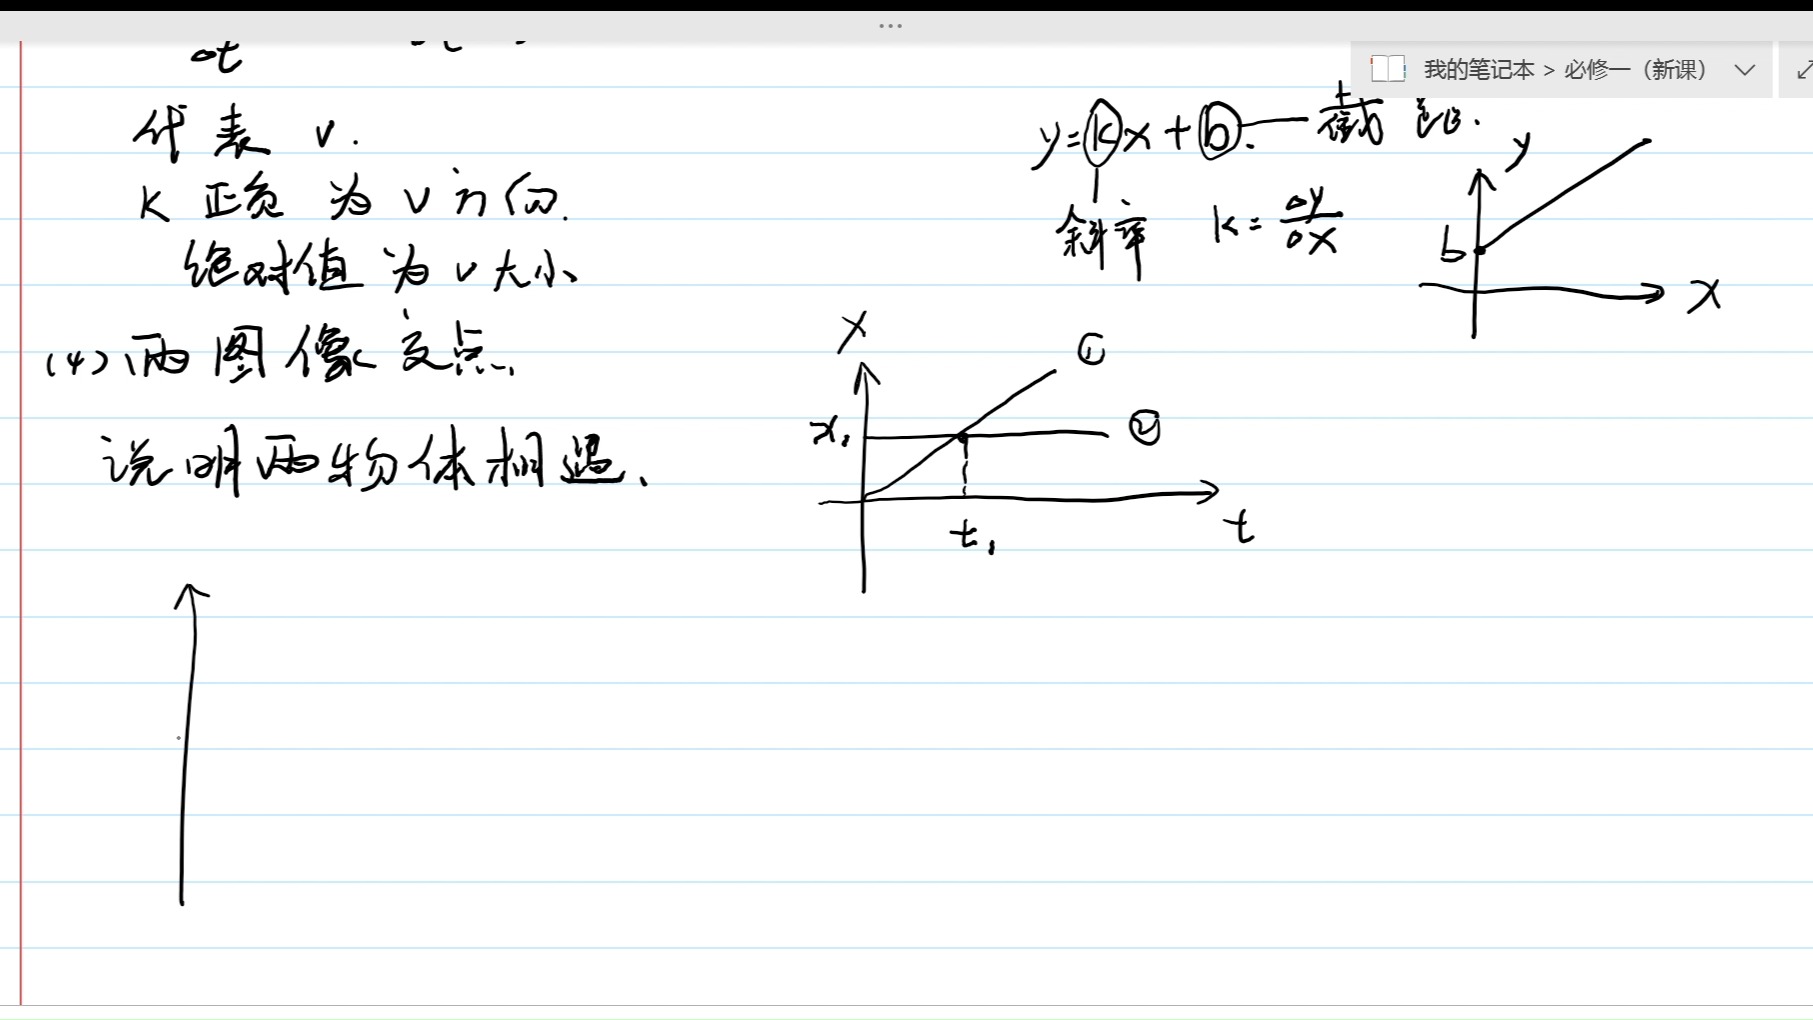 我的笔记本 > 必修一（新课）
Δt
代表 v.
K 正负 为 v 方向.
绝对值 为 v 大小
(4) 两图像交点.
说明两物体相遇.
y=kx+b. 截距.
斜率 k=Δy/Δx
y
b
x
x
①
x₁
②
t₁
t